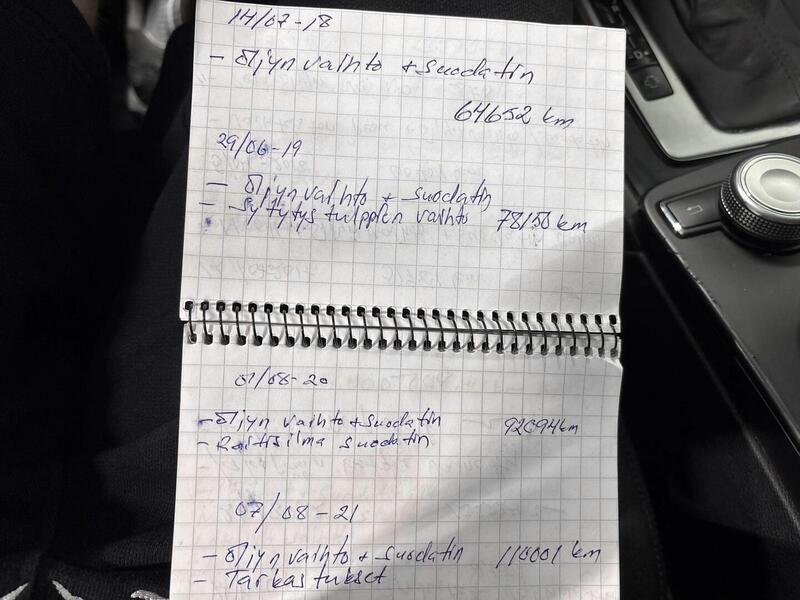 14/07-18
- Öljyn vaihto + Suodatin
64652 km
29/06-19
- Öljyn vaihto + Suodatin
- Sytytys tulppien vaihto 78150 km
01/08-20
- Öljyn vaihto + Suodatin 92094 km
- Raitisilma Suodatin
07/08-21
- Öljyn vaihto + Suodatin 110001 km
- Tarkastukset